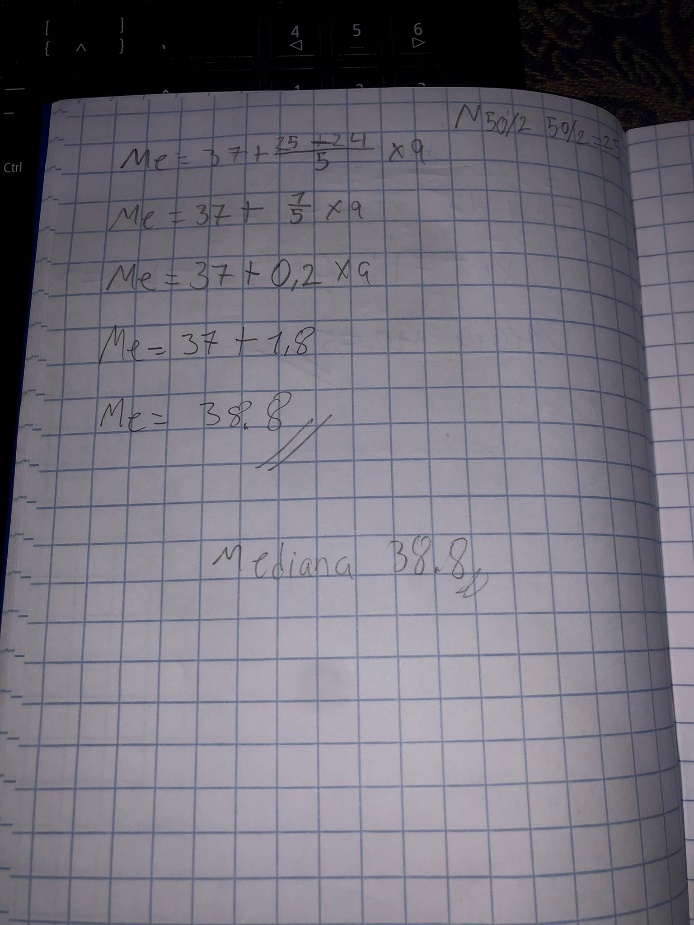 [ ] 4 5 6
{ ^ } ◁ ▷
Ctrl
N 50/2 50/2 = 25
Me = 37 + 25 + 24 / 5 x 9
Me = 37 + 1/5 x 9
Me = 37 + 0,2 x 9
Me = 37 + 1,8
Me = 38.8
Mediana 38.8